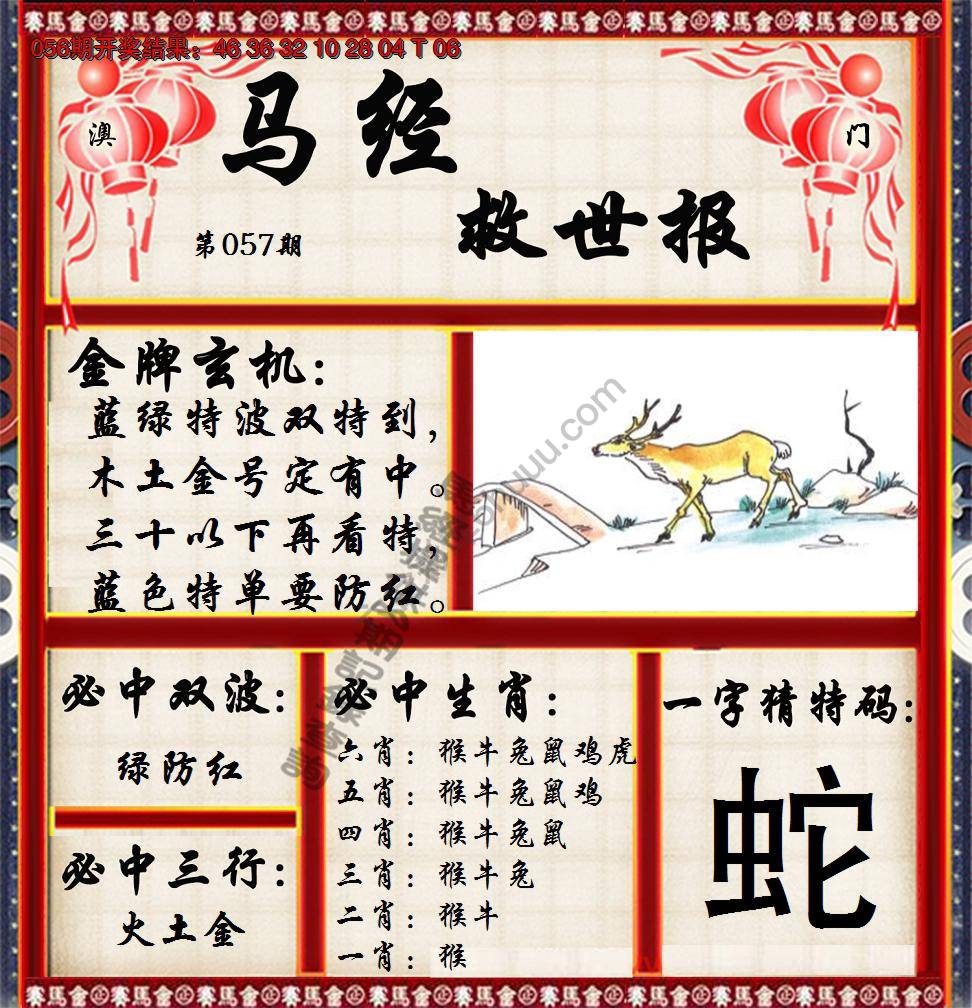 赛馬金㊣赛馬金㊣赛馬金㊣赛馬金㊣赛馬金㊣赛馬金㊣
056期开奖结果：46 36 32 10 28 04 T 06
澳
门
马经
救世报
第057期
金牌玄机：
蓝绿特波双特到，
木土金号定有中。
三十以下再看特，
蓝色特单要防红。
必中双波：
绿防红
必中三行：
火土金
必中生肖：
六肖：猴牛兔鼠鸡虎
五肖：猴牛兔鼠鸡
四肖：猴牛兔鼠
三肖：猴牛兔
二肖：猴牛
一肖：猴
一字猜特码：
蛇